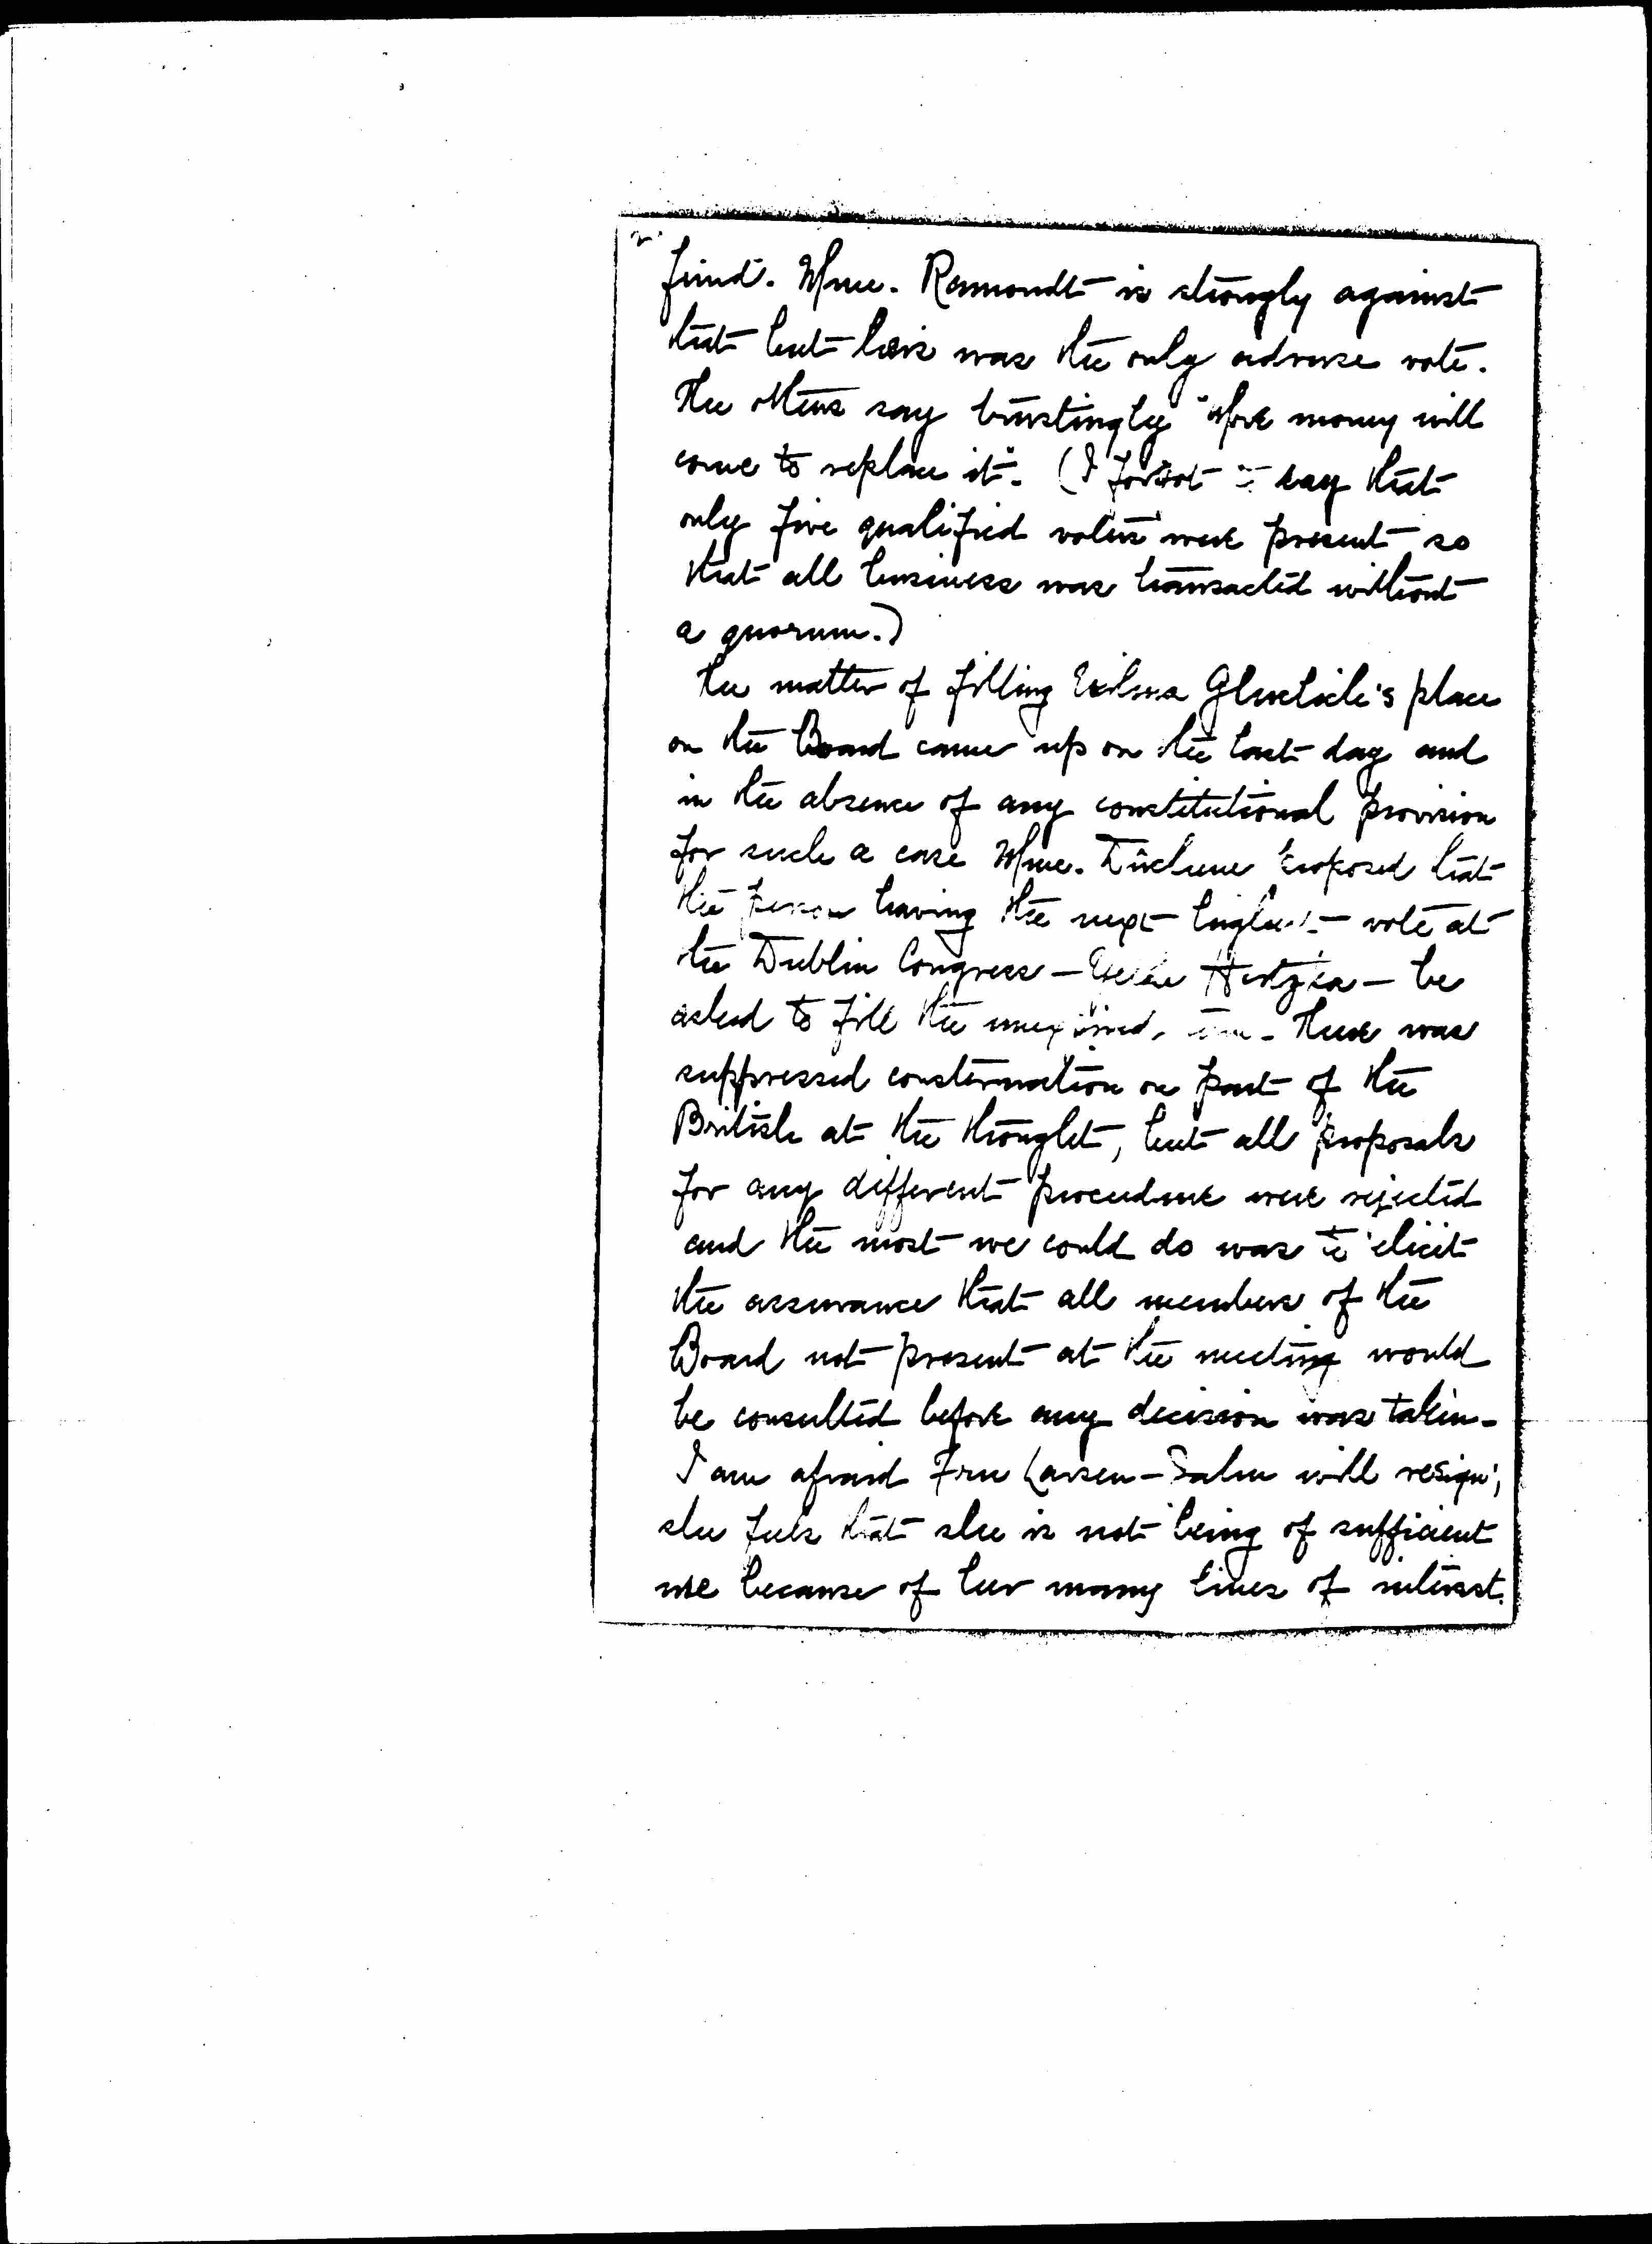 2.
fund. Mme. Ramondt is strongly against
that but hers was the only adverse vote.
The others say trustingly "More money will
come to replace it". (I forgot to say that
only five qualified voters were present so
that all business was transacted without
a quorum.)
The matter of filling Vilma Glücklich's place
on the Board came up on the last day and
in the absence of any constitutional provision
for such a case Mme. Duchene proposed that
the person having the next highest vote at
the Dublin Congress — Hertzka — be
asked to fill the unexpired term. There was
suppressed consternation on part of the
British at the thought, but all proposals
for any different procedure were rejected
and the most we could do was to elicit
the assurance that all members of the
Board not present at the meeting would
be consulted before any decision was taken.
I am afraid Fru Larsen-Jahn will resign;
she feels that she is not being of sufficient
use because of her many lines of interest.